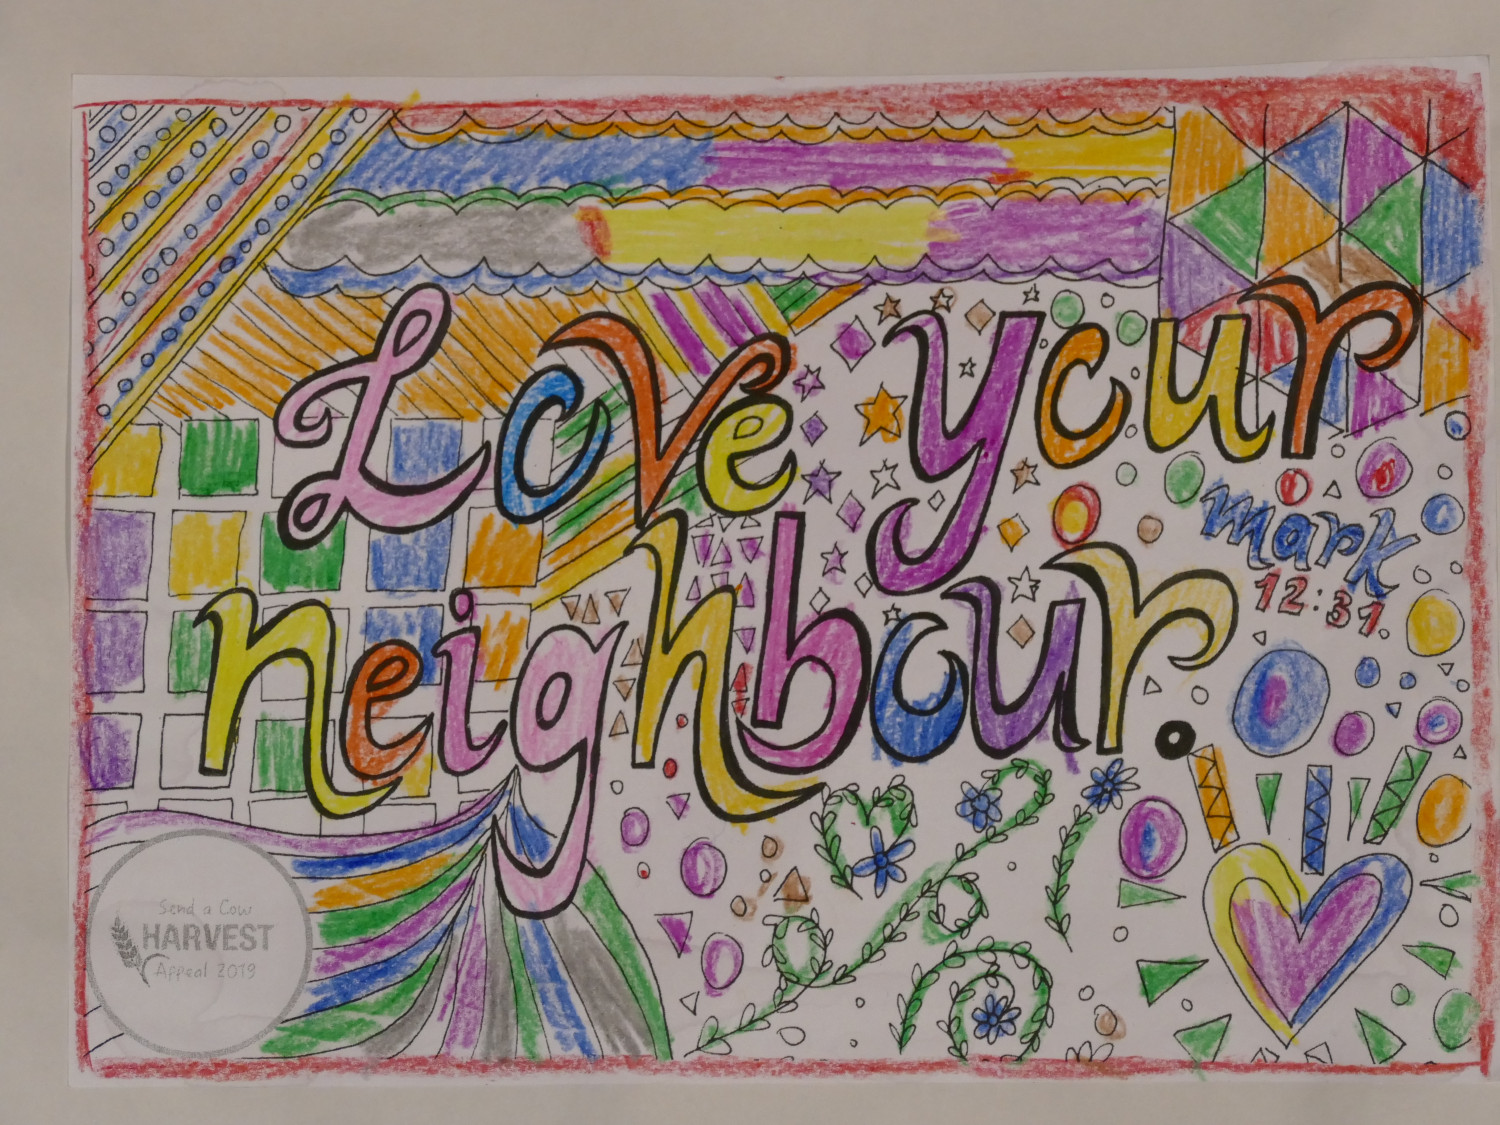 Love your
neighbour.
mark
12:31.
Send a Cow
HARVEST
Appeal 2019